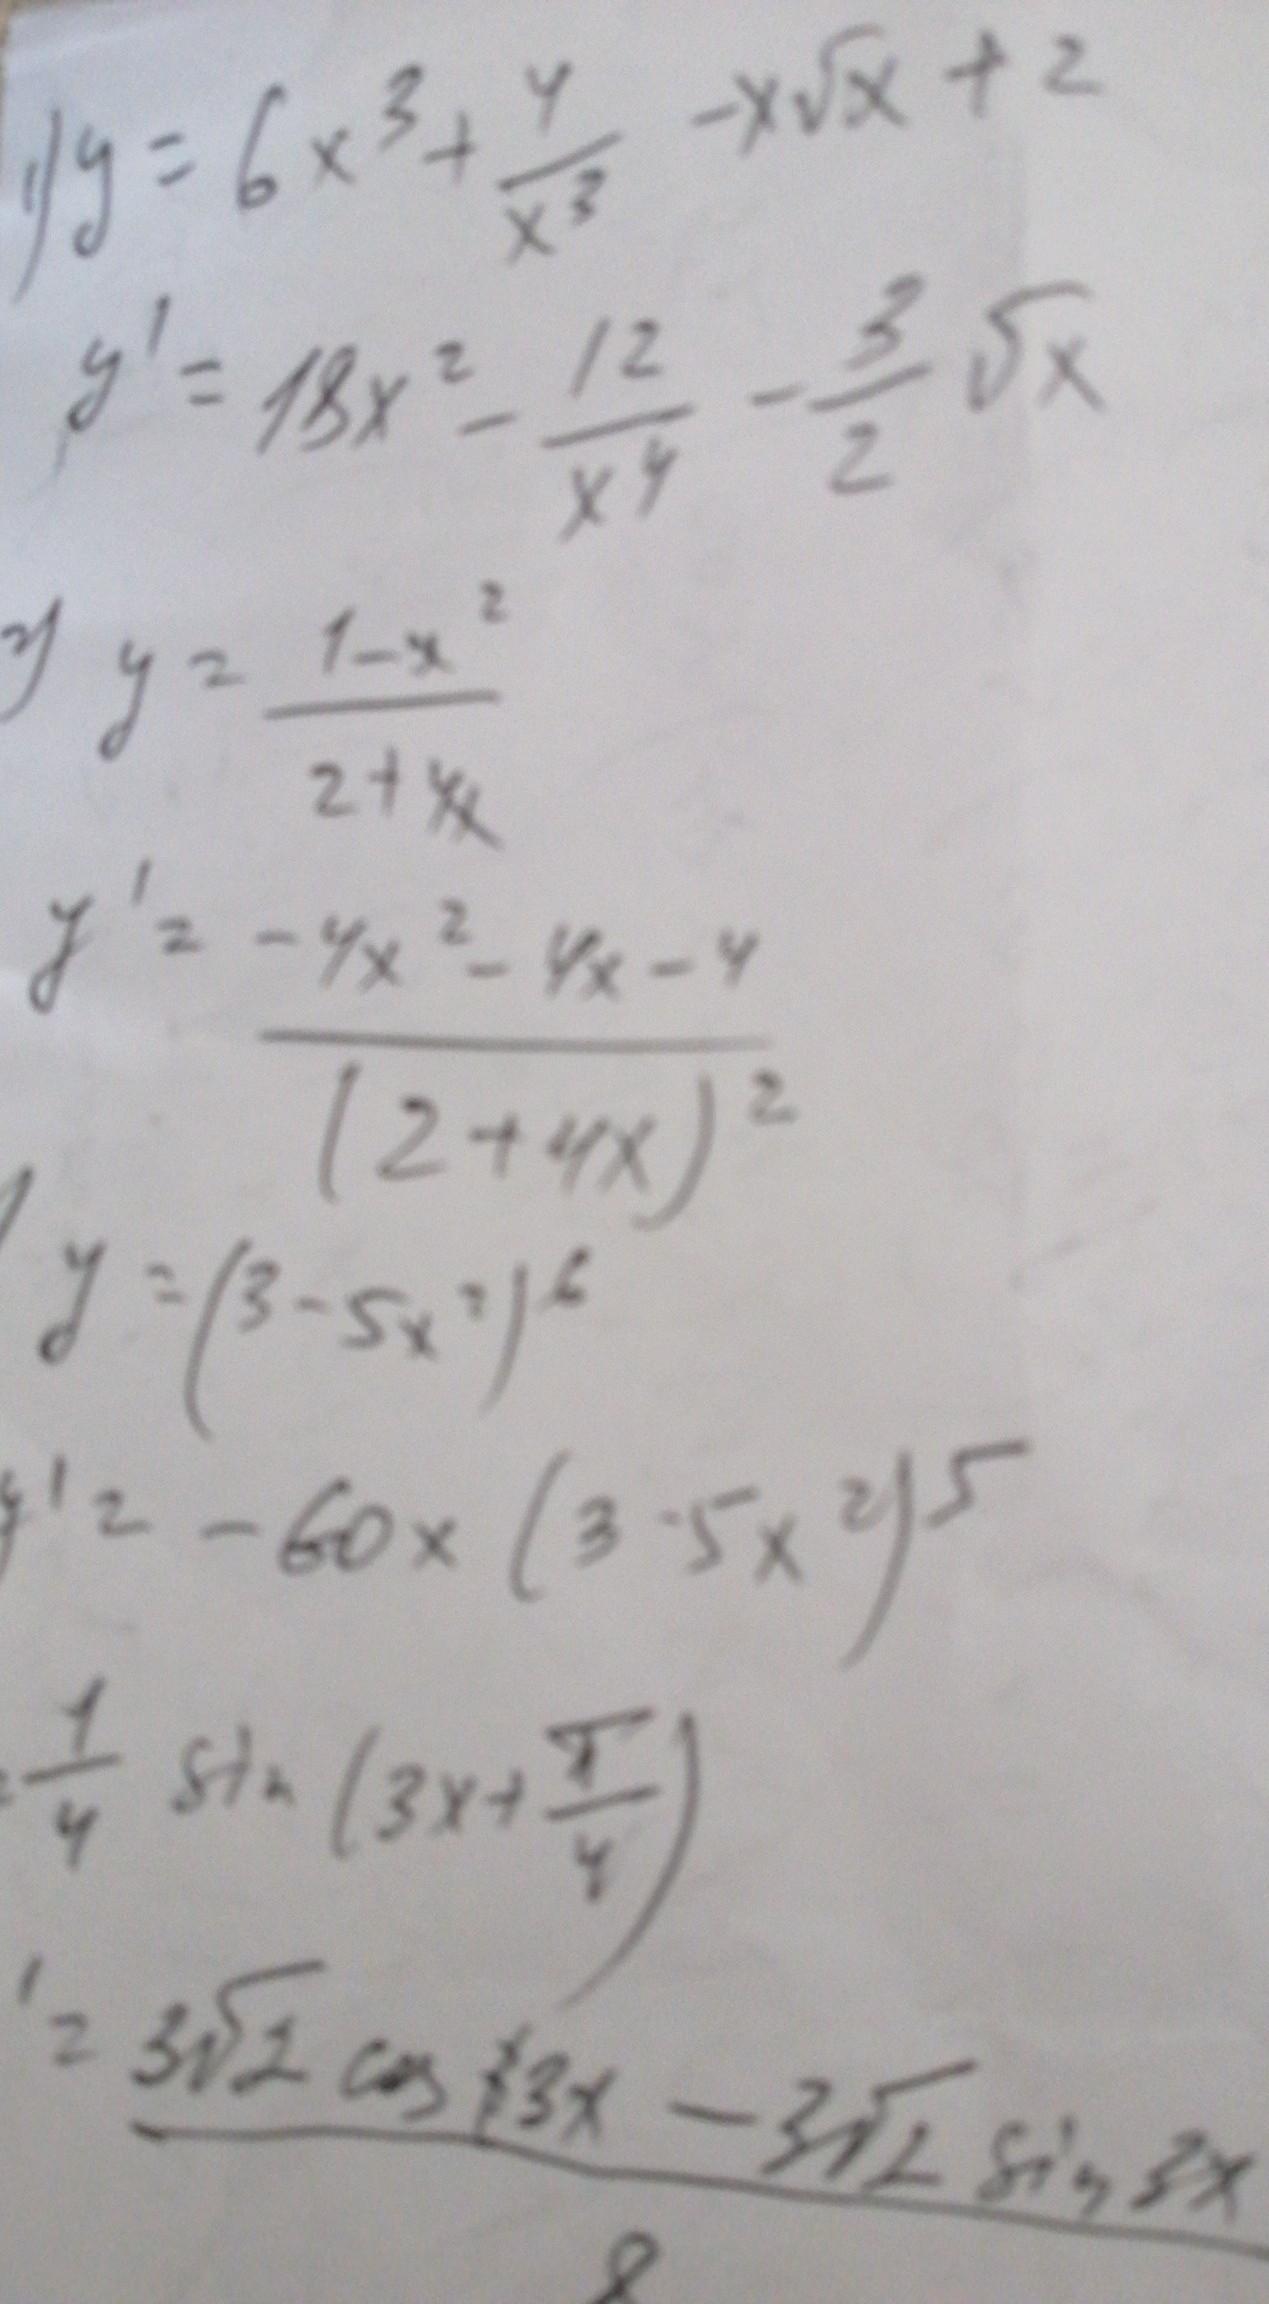 1) y = 6x³ + 4/x³ - x√x + 2
y' = 18x² - 12/x⁴ - 3/2 √x
2) y = (1-x²)/(2+4x)
y' = (-4x²-4x-4)/(2+4x)²
) y = (3-5x²)⁶
y' = -60x (3-5x²)⁵
= 1/4 sin (3x + π/4)
' = (3√2 cos 3x - 3√2 sin 3x)/8